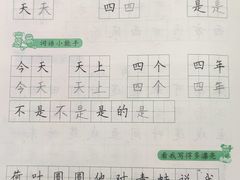 天 天 四 四 是 是
词语小能手
今天 天上 四个 四年
今天 天上 四个 四年
不是 不是 是的 是
看我写得多漂亮
荷叶圆圆他对青蛙说